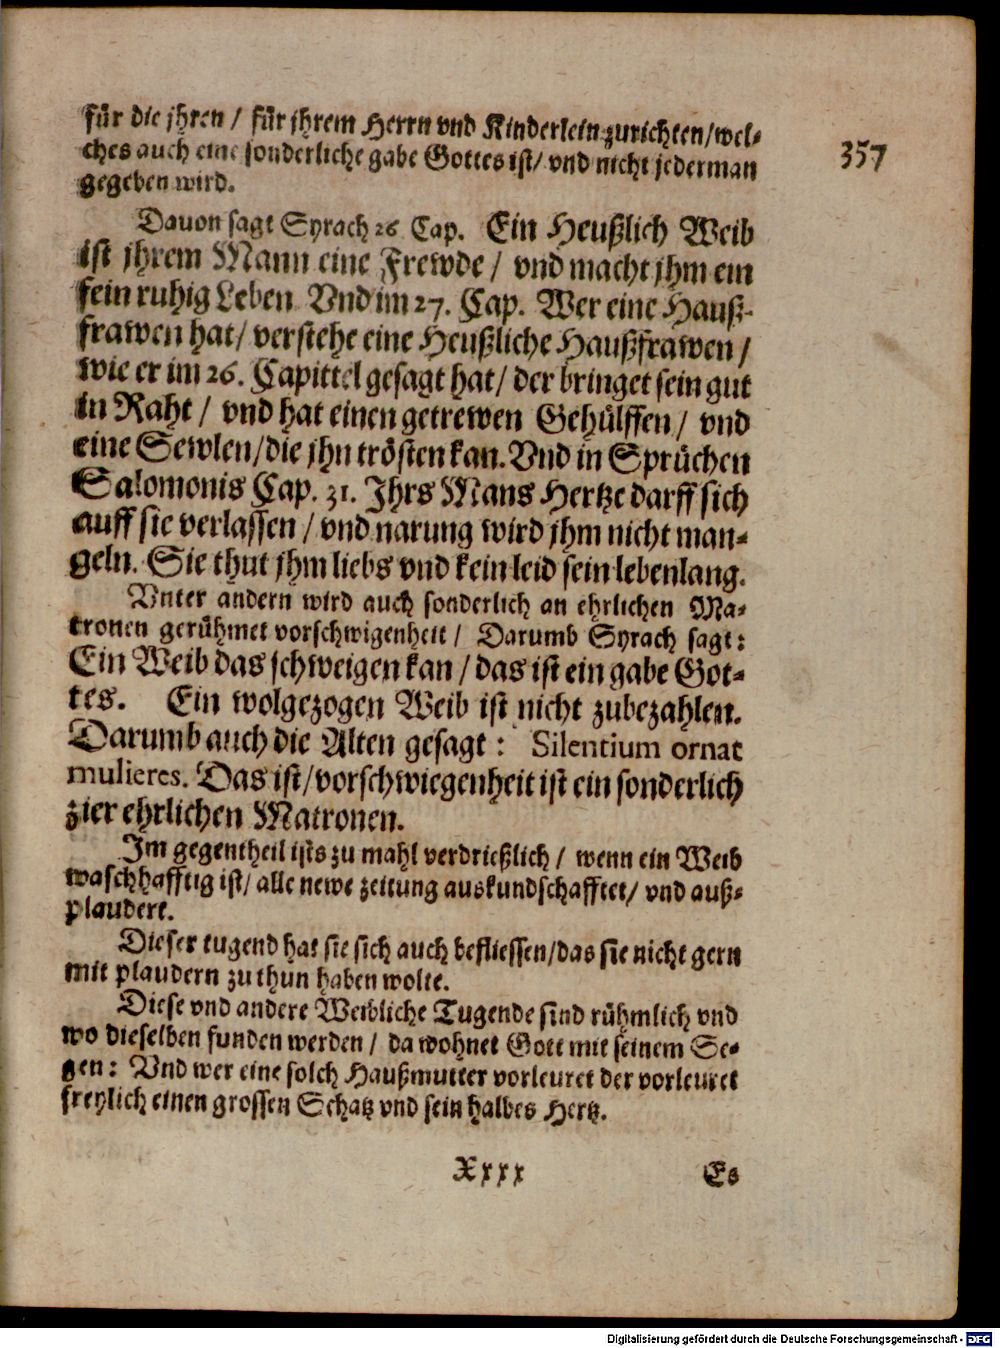 für die jhren / für jhrem Herrn vnd Kinderlein zurichten/wel-
ches auch eine sonderliche gabe Gottes ist/ vnd nicht jederman
gegeben wird.
357
Davon sagt Syrach 26 Cap. Ein Heußlich Weib
ist jhrem Mann eine Frewde / vnd macht jhm ein
fein ruhig Leben Vnd im 27. Cap. Wer eine Hauß-
frawen hat/ verstehe eine Heußliche Haußfrawen /
wie er im 26. Capittel gesagt hat/ der bringet sein gut
in Raht / vnd hat einen getrewen Gehülffen / vnd
eine Sewlen/die jhn trösten kan. Vnd in Sprüchen
Salomonis Cap. 31. Jhrs Mans Hertze darff sich
auff sie verlassen / vnd narung wird jhm nicht man-
geln. Sie thut jhm liebs vnd kein leid sein lebenlang.
Vnter andern wird auch sonderlich an ehrlichen Ma-
tronen gerühmet vorschwigenheit / Darumb Syrach sagt:
Ein Weib das schweigen kan / das ist ein gabe Got-
tes. Ein wolgezogen Weib ist nicht zubezahlen.
Darumb auch die Alten gesagt : Silentium ornat
mulieres. Das ist/vorschwiegenheit ist ein sonderlich
zier ehrlichen Matronen.
Im gegentheil ists zu mahl verdrießlich / wenn ein Weib
waschhafftig ist/ alle newe zeitung auskundschafftet/ vnd auß-
plaudert.
Dieser tugend hat sie sich auch befliessen/das sie nicht gern
mit plaudern zu thun haben wolte.
Diese vnd andere Weibliche Tugende sind rühmlich vnd
wo dieselben funden werden / da wohnet Gott mit seinem Se-
gen: Vnd wer eine solch Haußmutter vorleuret der vorleuret
freylich einen grossen Schatz vnd sein halbes Hertz.
Xxxx Es
Digitalisierung gefördert durch die Deutsche Forschungsgemeinschaft - DFG